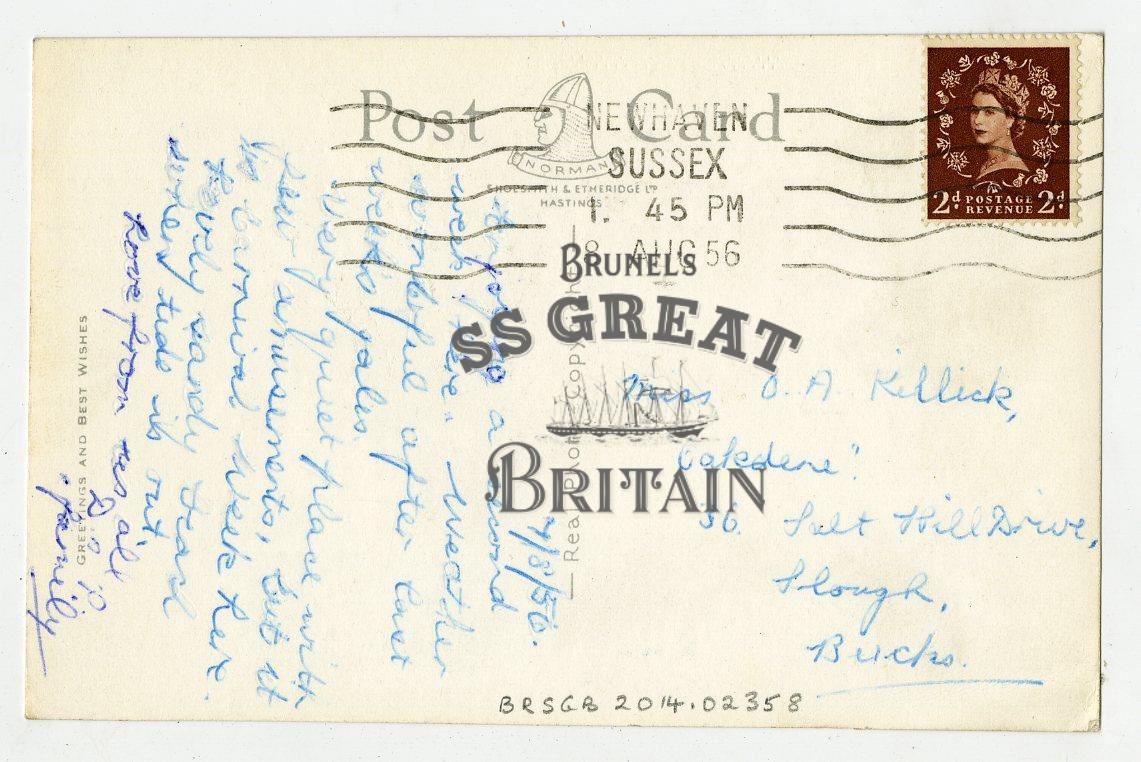 Post Card
NORMAN
SHOESMITH & ETHERIDGE LTD
HASTINGS
NEWHAVEN
SUSSEX
1. 45 PM
8 AUG 56
2d POSTAGE 2d
REVENUE
GREETINGS AND BEST WISHES
Real Photo Copy
BRUNEL'S
SS GREAT
BRITAIN
7/8/56.
a second
week here. Weather
wonderful after last
weeks gales.
Very quiet place with
few amusements, but it
is Carnival Week here.
Lovely sandy
when tide is out
Love from us all
family
Miss O. A Killick,
"Oakdene"
36. Salt Hill Drive,
Slough,
Bucks.
BRSGB 2014.02358